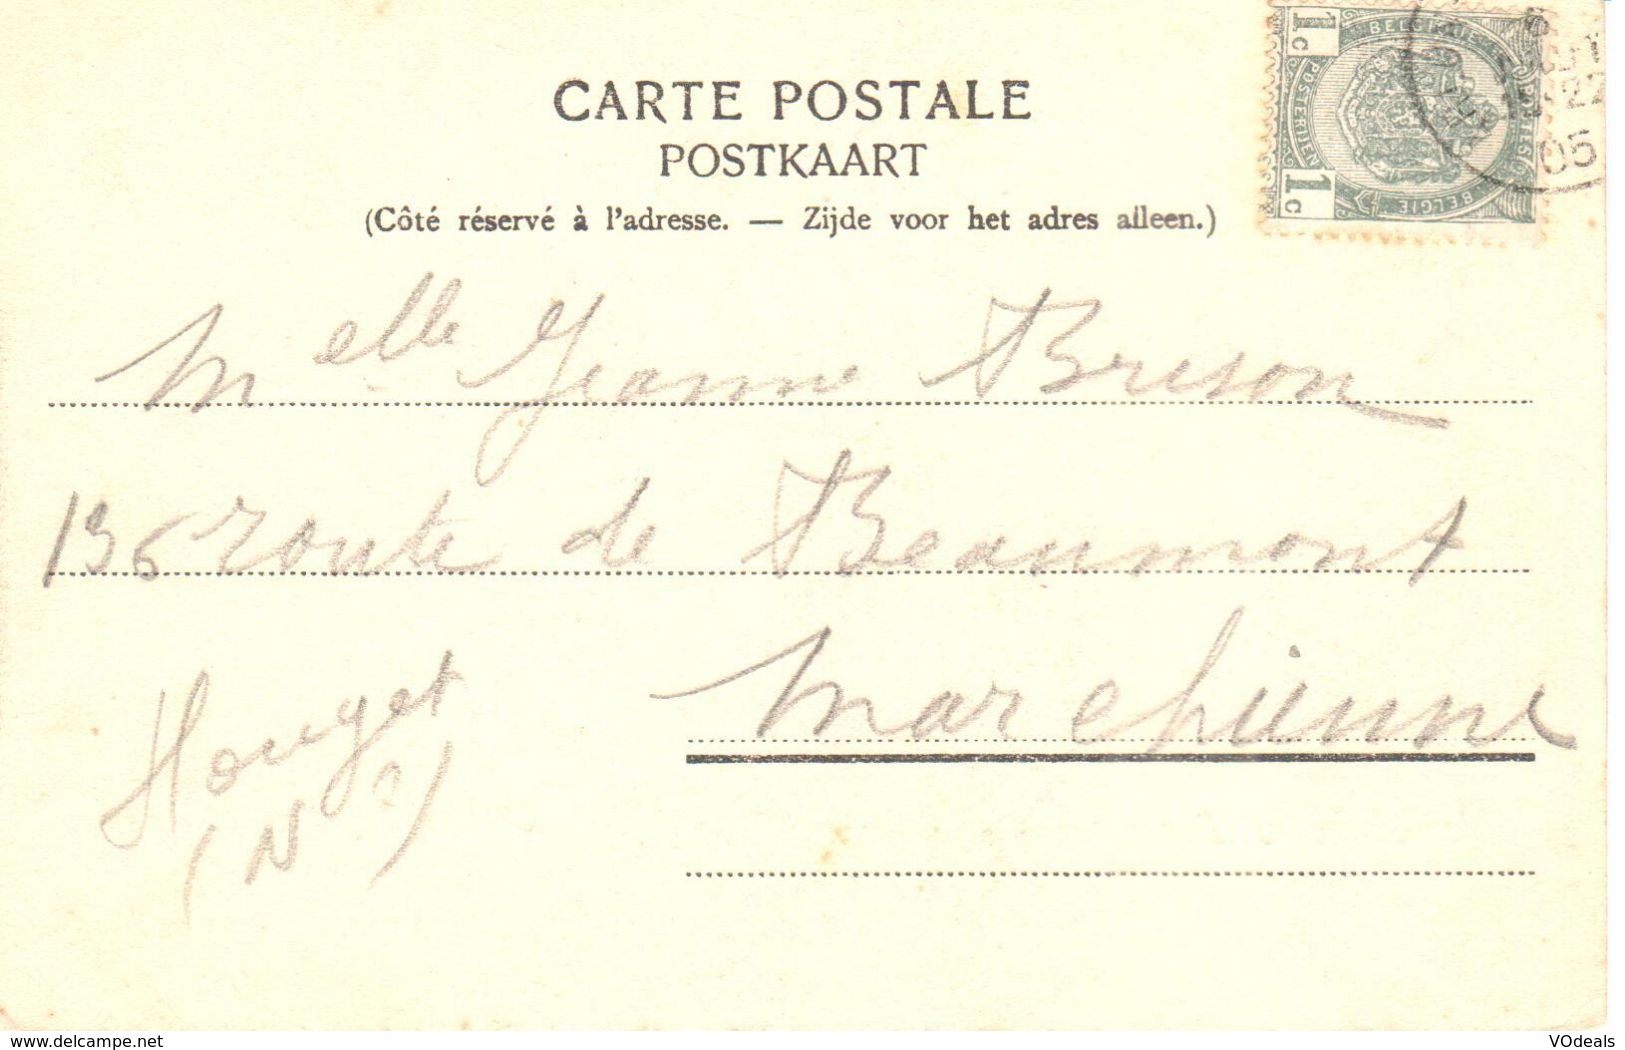 CARTE POSTALE
POSTKAART
(Côté réservé à l'adresse. — Zijde voor het adres alleen.)
1c BELGIQUE
POSTERIJEN POSTES
1c BELGIE
22
05
Melle Jeanne Breson
136 route de Beaumont
Marchienne
Houyet
(N 2)
www.delcampe.net
VOdeals